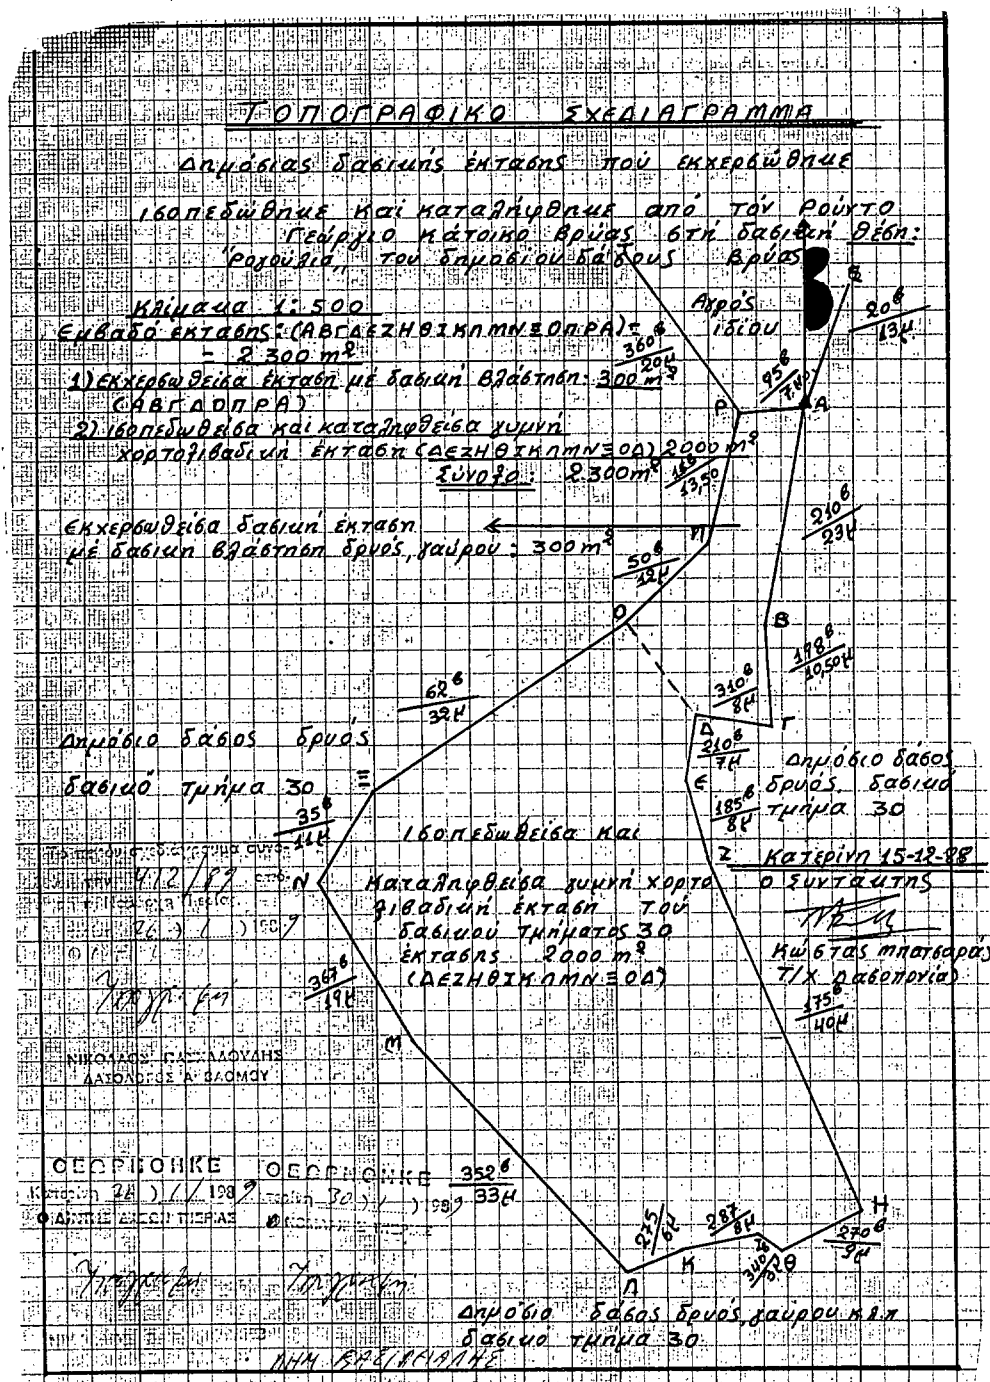 ΤΟΠΟΓΡΑΦΙΚΟ ΣΧΕΔΙΑΓΡΑΜΜΑ
Δημόσιας δασικής έκτασης πού εκχερσώθηκε
ισοπεδώθηκε καί καταλήφθηκε από τόν Ρούντο
Γεώργιο κάτοικο Βρύας στή δασική θέση:
"Ρογούλια„ τού δημοσίου δάσους Βρύας
Κλίμακα 1:500
Εμβαδό έκτασης: (ΑΒΓΔΕΖΗΘΙΚΛΜΝΞΟΠΡΑ)=
= 2.300 m²
1) Εκχερσωθείσα έκταση μέ δασική βλάστηση: 300 m²
(ΑΒΓΔΟΠΡΑ)
2) ισοπεδωθείσα και καταληφθείσα γυμνή
χορτολιβαδική έκταση (ΔΕΖΗΘΙΚΛΜΝΞΟΔ) 2000 m²
Σύνολο: 2.300 m²
Εκχερσωθείσα δασική έκταση
μέ δασική βλάστηση δρυός, γαύρου: 300 m²
Αγρός
ιδίου
20⁶
13μ
360⁶
20μ
95⁶
Ρ
Α
16⁶
13,50
210⁶
23μ
Π
50⁶
12μ
Ο
Β
198⁶
10,50μ
62⁶
32μ
310⁶
8μ
Δ
Γ
210⁶
7μ
Ε
185⁶
8μ
Ζ
Δημόσιο δάσος δρυός
δασικό τμήμα 30
Ξ
35⁶
11μ
Ν
Δημόσιο δάσος
δρυός, δασικό
τμήμα 30
Κατερίνη 15-12-88
Ο Συντάκτης
Κώστας Μπατσαράς
Τ/Χ Δασοπονίας
ισοπεδωθείσα και
Καταληφθείσα γυμνή χορτο
λιβαδική έκταση τού
δασικού τμήματος 30
έκτασης 2000 m²
(ΔΕΖΗΘΙΚΛΜΝΞΟΔ)
412/89
26 1 1989
ΝΙΚΟΛΑΟΣ ΠΑΣΧΑΛΟΥΔΗΣ
ΔΑΣΟΛΟΓΟΣ Α ΒΑΘΜΟΥ
367⁶
19μ
Μ
175⁶
40μ
352⁶
33μ
ΘΕΩΡΗΘΗΚΕ
Κατερίνη 26 / 1 / 1989
Ο Δ/ΝΤΗΣ ΔΑΣΩΝ ΠΙΕΡΙΑΣ
ΘΕΩΡΗΘΗΚΕ
30 1 1989
275
6μ
287
8μ
340⁶
270⁶
9μ
Η
Θ
Ι
Κ
Λ
Δημόσιο δάσος δρυός, γαύρου κ.λ.π
δασικό τμήμα 30